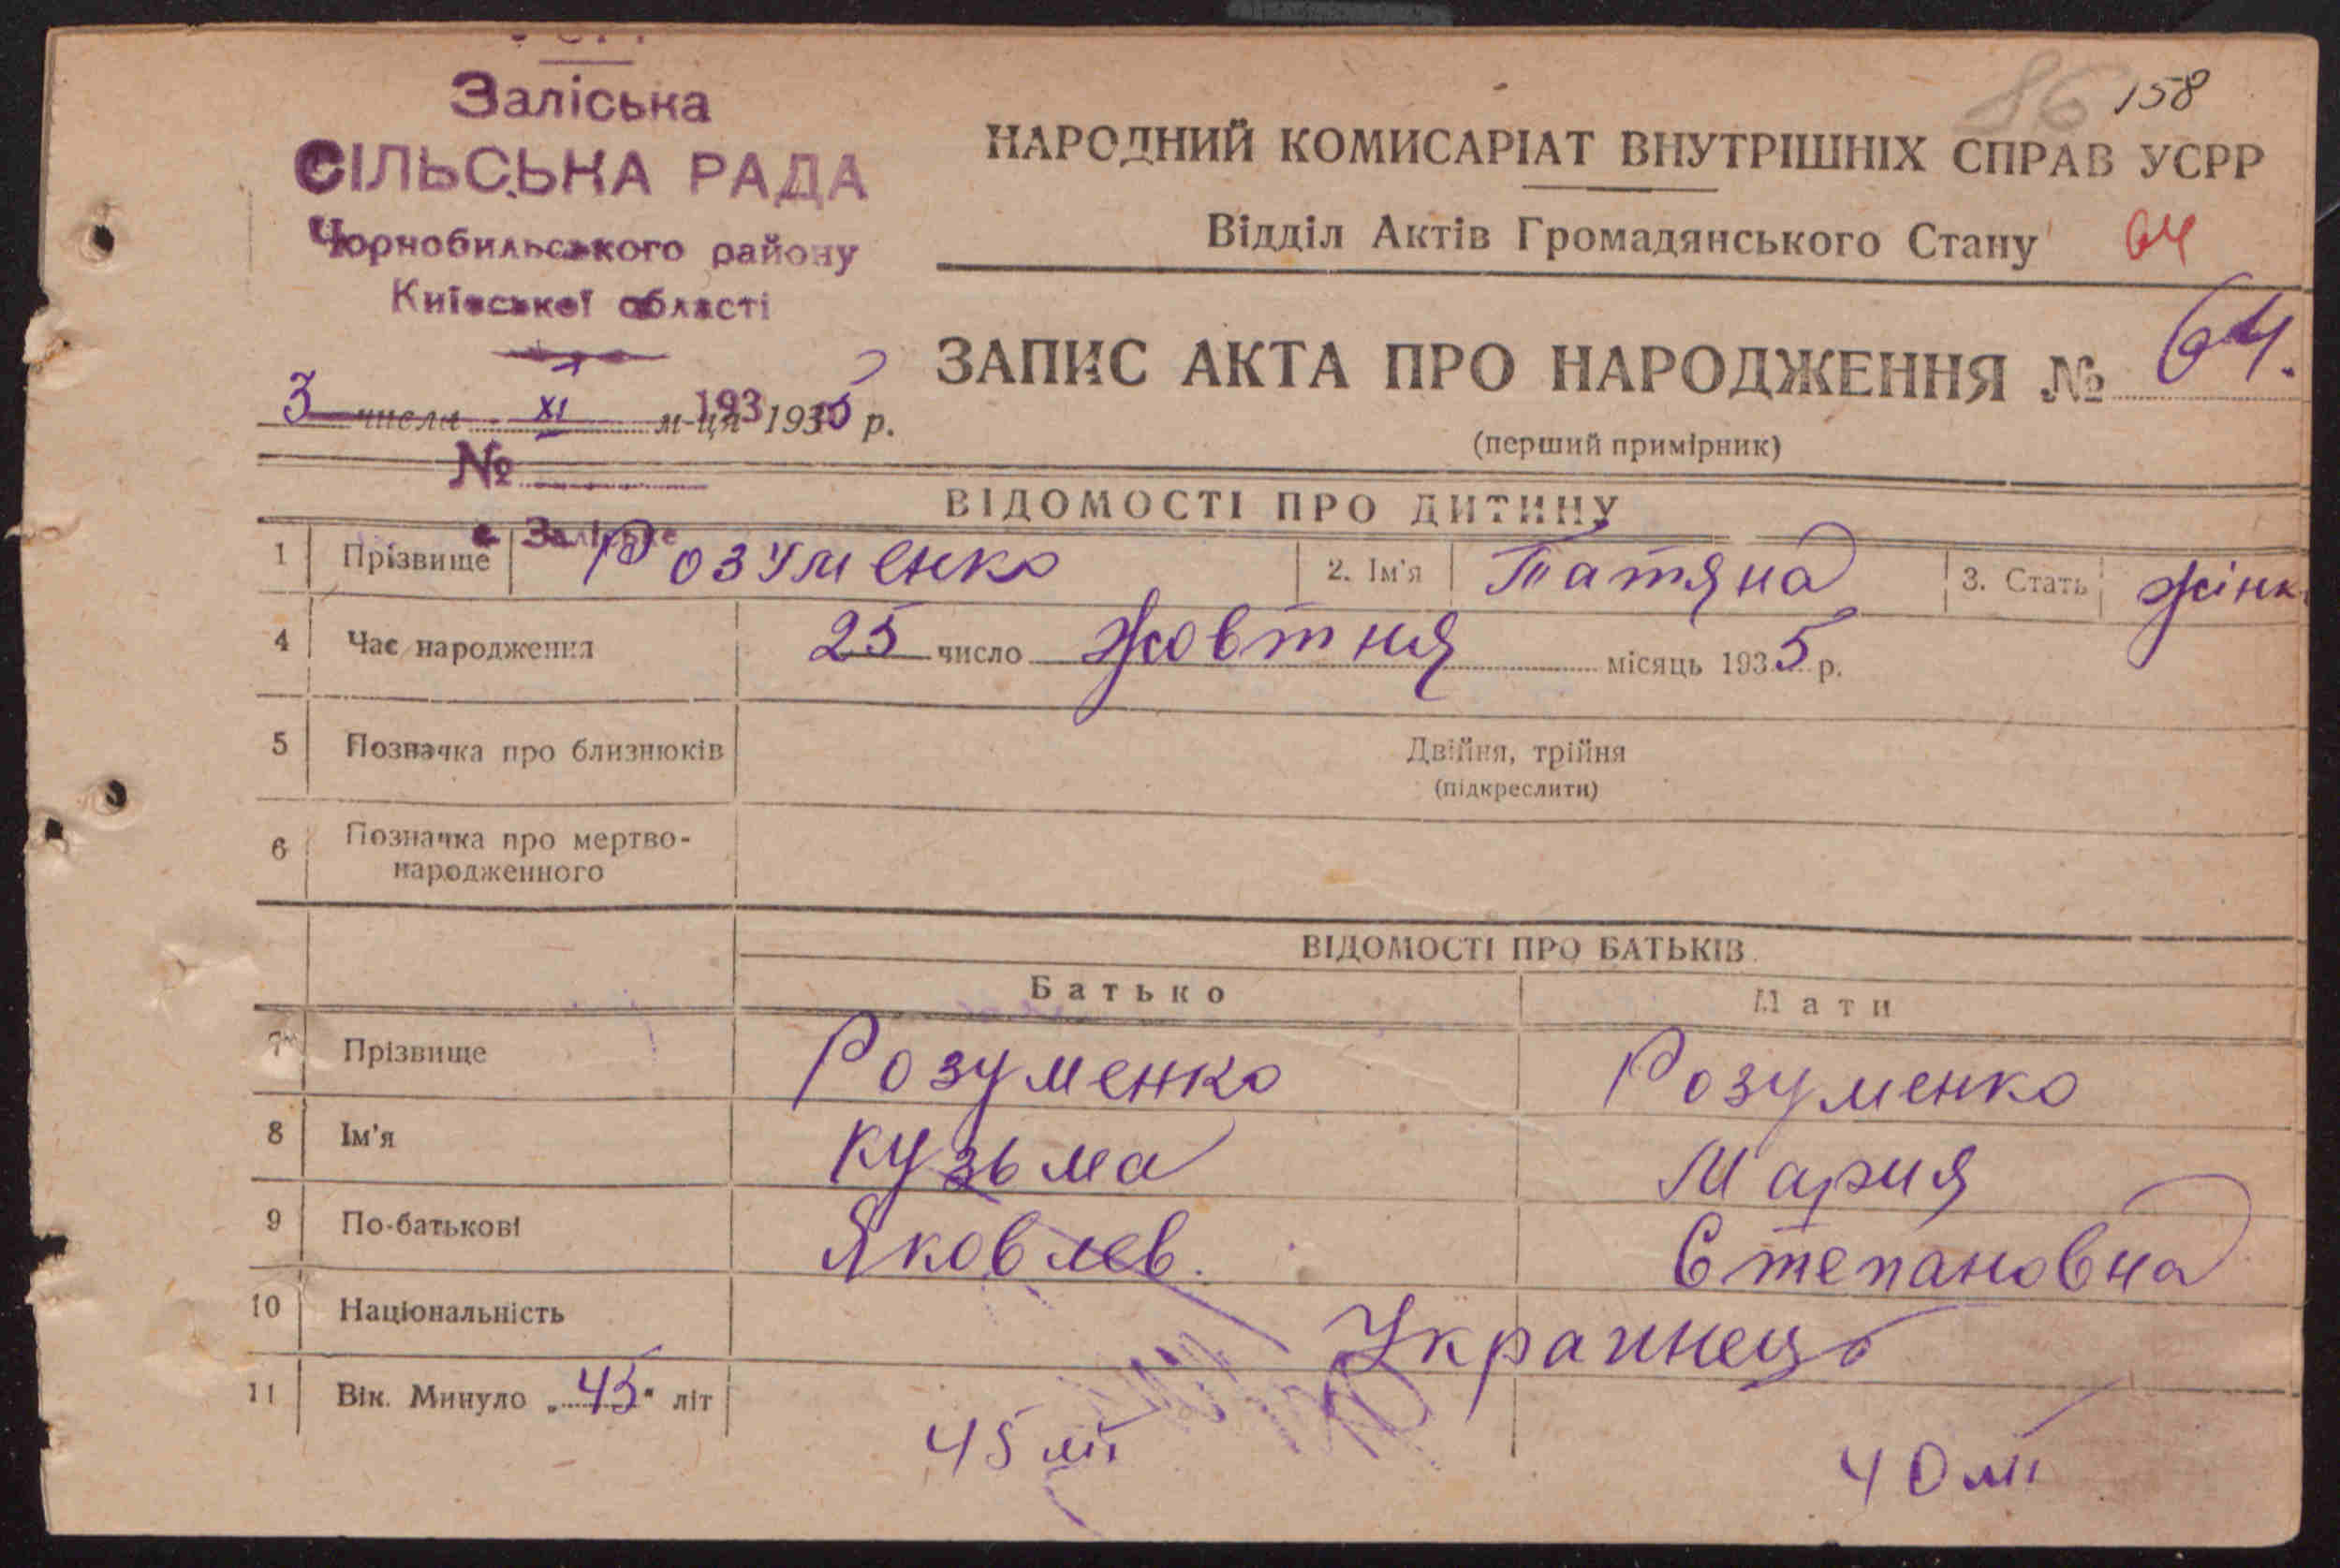 Заліська
СІЛЬСЬКА РАДА
Чорнобильського району
Київської області
3 числа XI м-ця 193 1935 р.
№
с. Заліське
86 158
НАРОДНИЙ КОМИСАРІАТ ВНУТРІШНІХ СПРАВ УСРР
Відділ Актів Громадянського Стану 64
ЗАПИС АКТА ПРО НАРОДЖЕННЯ № 64.
(перший примірник)
ВІДОМОСТІ ПРО ДИТИНУ
1 Прізвище Розуменко 2. Ім'я Татяна 3. Стать жінк
4 Час народження 25 число Жовтня місяць 1935 р.
5 Позначка про близнюків Двійня, трійня
(підкреслити)
6 Позначка про мертво-
народженного
ВІДОМОСТІ ПРО БАТЬКІВ
Батько Мати
7 Прізвище Розуменко Розуменко
8 Ім'я Кузьма Мария
9 По-батькові Яковлев. Степановна
10 Національність Украинець
11 Вік. Минуло „45" літ
45 літ 40 літ